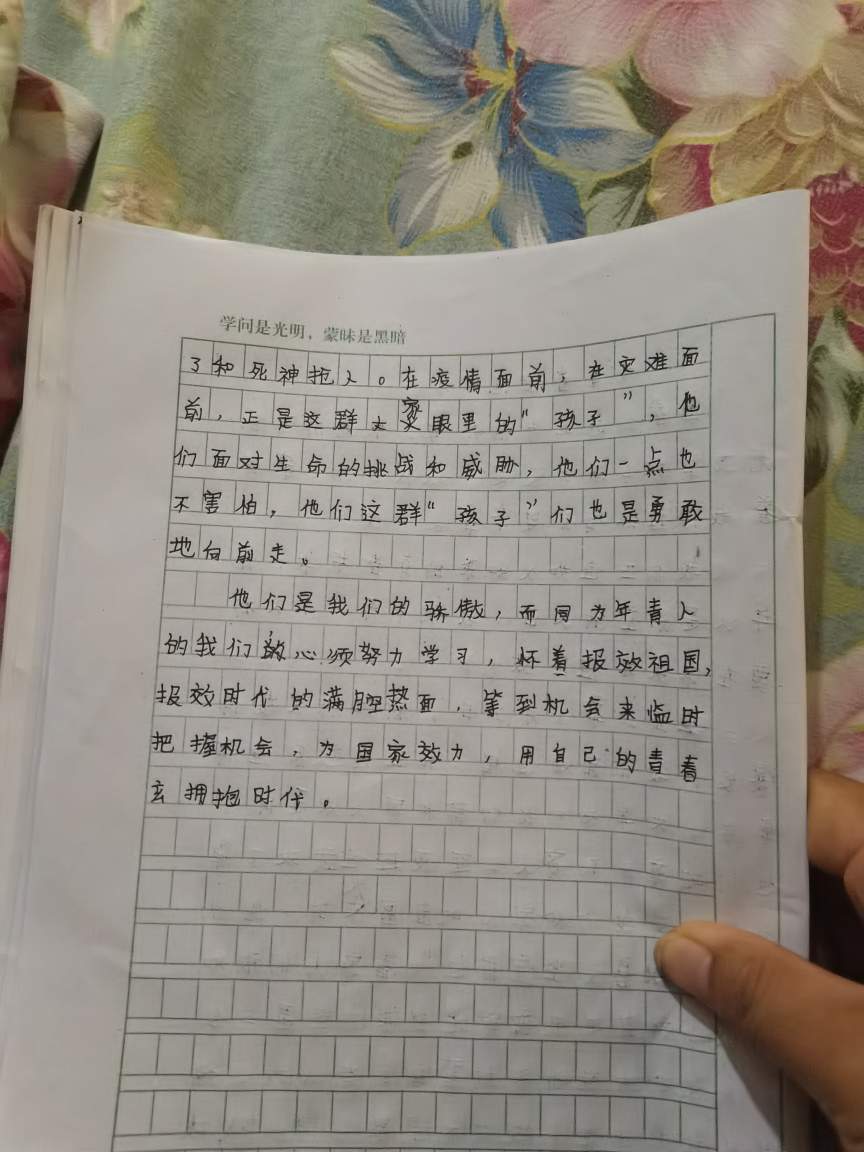 学问是光明，蒙昧是黑暗
了和死神抢人。在疫情面前，在灾难面
前，正是这群大家眼里的“孩子”，他
们面对生命的挑战和威胁，他们一点也
不害怕，他们这群“孩子”们也是勇敢
地向前走。
他们是我们的骄傲，而同为年青人
的我们必须努力学习，怀着报效祖国，
报效时代的满腔热面，等到机会来临时
把握机会，为国家效力，用自己的青春
去拥抱时代。